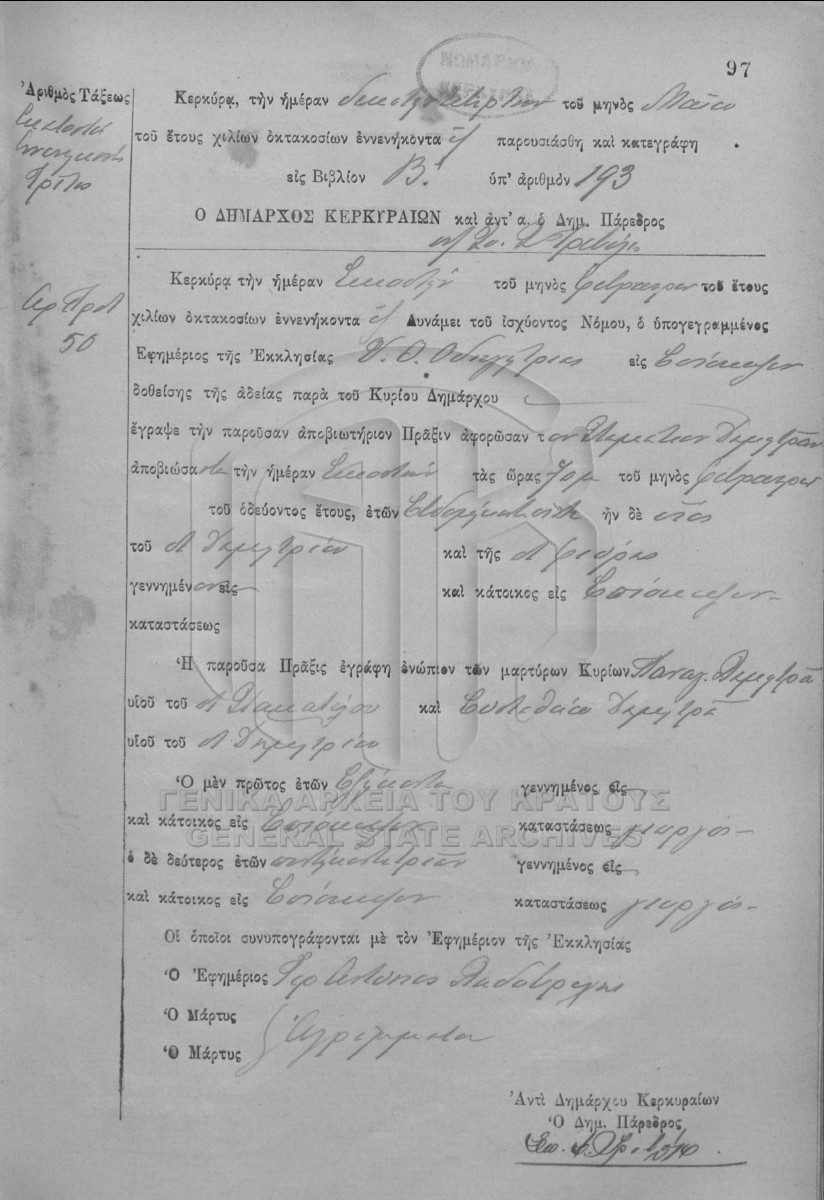 97
ΝΟΜΑΡΧΙΑ
ΚΕΡΚΥΡΑΣ
Ἀριθμὸς Τάξεως
Ἑκατοστὸς
Ἐννενηκοστὸς
Τρίτος
Κερκύρᾳ, τὴν ἡμέραν δεκάτην τετάρτην τοῦ μηνὸς Μαΐου
τοῦ ἔτους χιλίων ὀκτακοσίων ἐννενήκοντα ἓξ παρουσιάσθη καὶ κατεγράφη
εἰς Βιβλίον Β΄. ὑπ' ἀριθμὸν 193
Ο ΔΗΜΑΡΧΟΣ ΚΕΡΚΥΡΑΙΩΝ καὶ ἀντ' α. ὁ Δημ. Πάρεδρος
Αρ Πρωτ
50
Κερκύρᾳ τὴν ἡμέραν Εικοστὴν τοῦ μηνὸς Φεβρουαρίου τοῦ ἔτους
χιλίων ὀκτακοσίων ἐννενήκοντα ἓξ Δυνάμει τοῦ ἰσχύοντος Νόμου, ὁ ὑπογεγραμμένος
Ἐφημέριος τῆς Ἐκκλησίας Υ. Θ. Οδηγητριας εἰς Επίσκεψιν
δοθείσης τῆς ἀδείας παρὰ τοῦ Κυρίου Δημάρχου
ἔγραψε τὴν παροῦσαν ἀποβιωτήριον Πρᾶξιν ἀφορῶσαν τον Σταματιον Δημητρᾶν
ἀποβιώσαντα τὴν ἡμέραν Εικοστὴν τὰς ὥρας 7 π μ τοῦ μηνὸς Φεβρουαρίου
τοῦ ὁδεύοντος ἔτους, ἐτῶν Εβδομήκοντα ἦν δὲ υἱος
τοῦ Δημητρίου καὶ τῆς
γεννημένον εἰς καὶ κάτοικος εἰς Επίσκεψιν
καταστάσεως
Ἡ παροῦσα Πρᾶξις ἐγράφη ἐνώπιον τῶν μαρτύρων Κυρίων Παναγ. Δημητρᾶ
υἱοῦ τοῦ καὶ Ευσταθίου Δημητρᾶ
υἱοῦ τοῦ Δημητρίου
Ὁ μὲν πρῶτος ἐτῶν Εξήκοντα γεννημένος εἰς
ΓΕΝΙΚΑ ΑΡΧΕΙΑ ΤΟΥ ΚΡΑΤΟΥΣ
καὶ κάτοικος εἰς Επίσκεψιν καταστάσεως γεωργὸς
GENERAL STATE ARCHIVES
ὁ δὲ δεύτερος ἐτῶν πεντήκοντα τριῶν γεννημένος εἰς
καὶ κάτοικος εἰς Επίσκεψιν καταστάσεως γεωργὸς
Οἱ ὁποῖοι συνυπογράφονται μὲ τὸν Ἐφημέριον τῆς Ἐκκλησίας
Ὁ Ἐφημέριος Ιερ Αντώνιος
Ὁ Μάρτυς Αγράμματοι
Ὁ Μάρτυς
Ἀντὶ Δημάρχου Κερκυραίων
Ὁ Δημ. Πάρεδρος